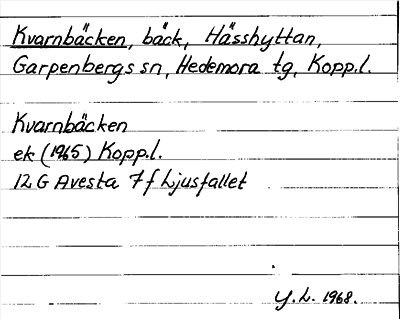 Kvarnbäcken, bäck, Hässhyttan,
Garpenbergs sn, Hedemora tg, Kopp.l.
Kvarnbäcken
ek (1965) Kopp.l.
12 G Avesta 7 f Ljusfallet
Y. L. 1968.